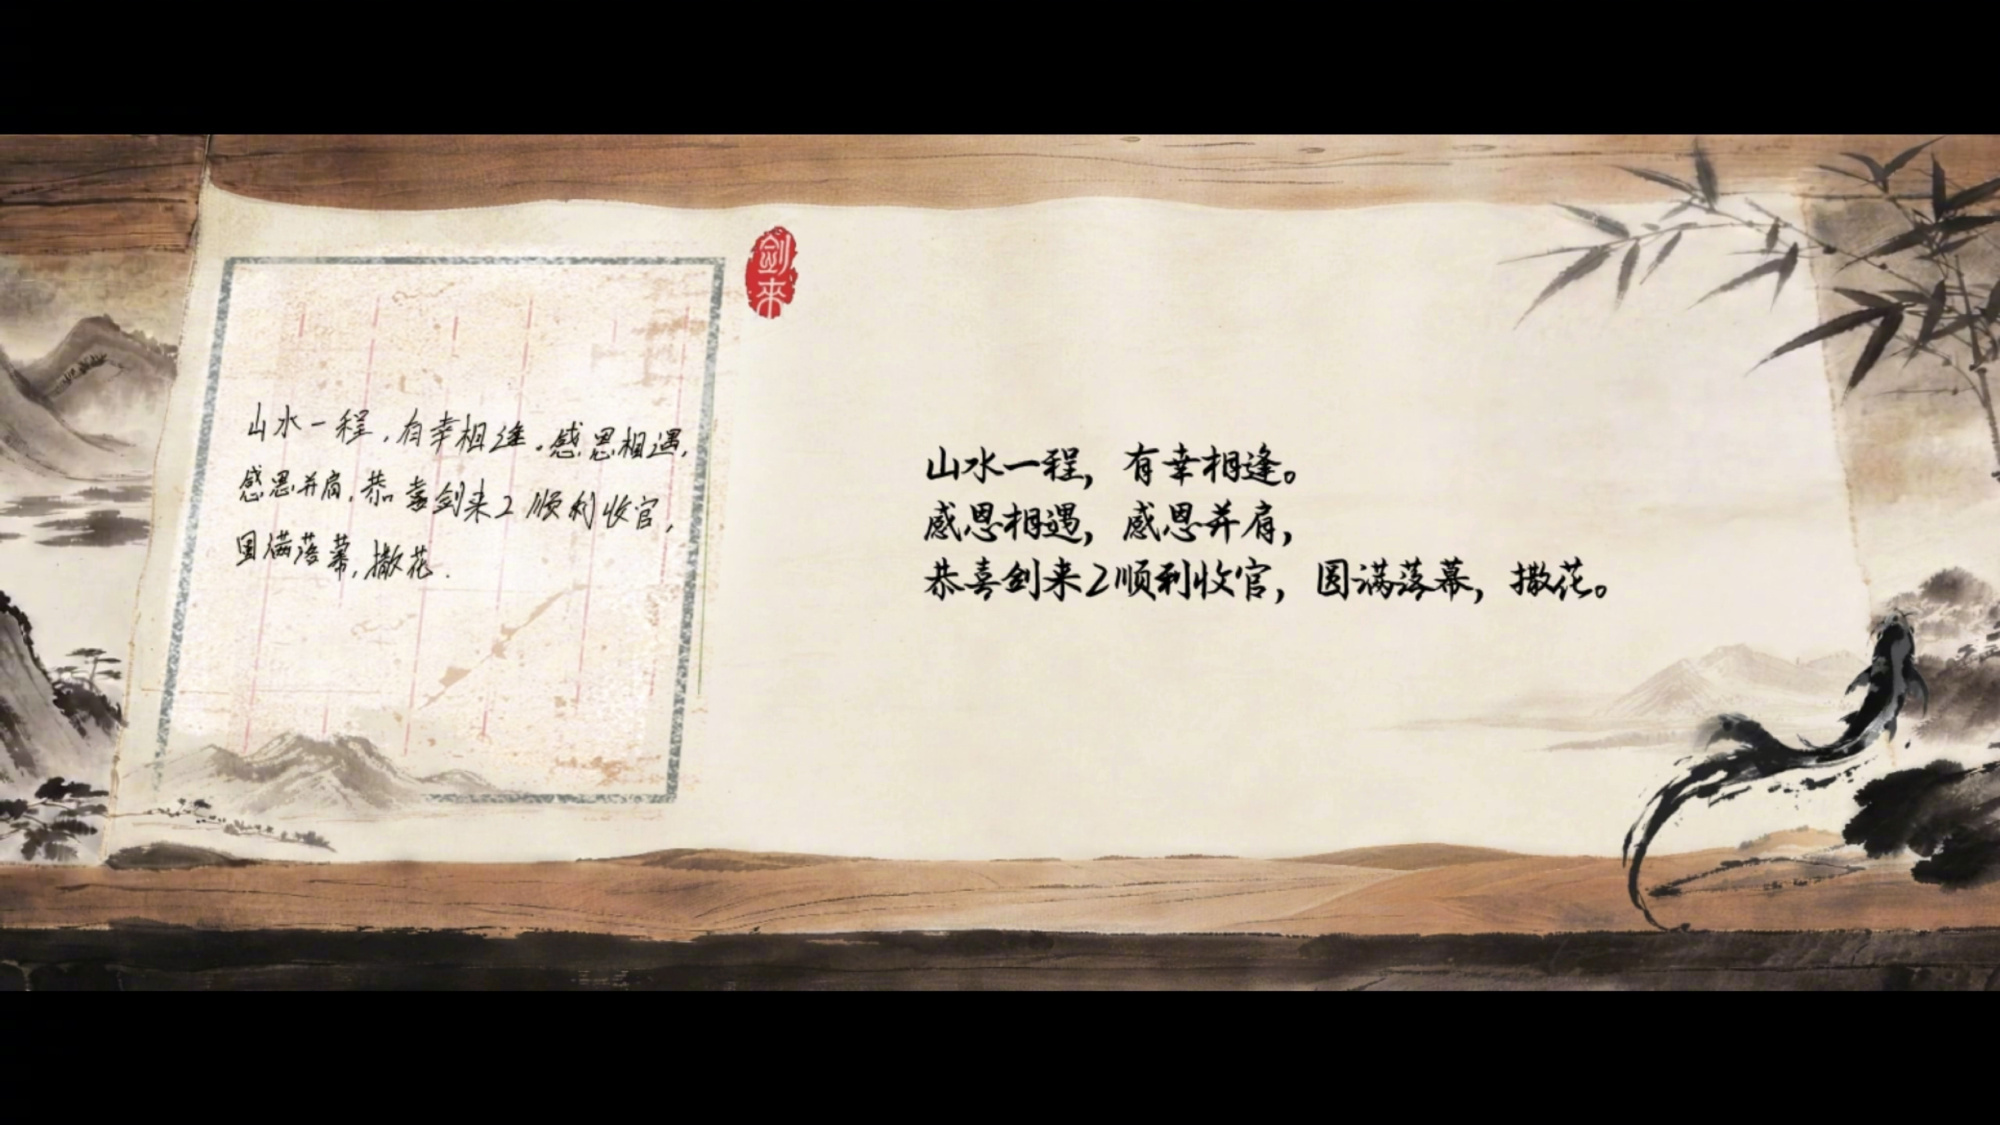 山水一程,有幸相逢.感恩相遇,
感恩并肩,恭喜剑来2顺利收官,
圆满落幕,撒花.
剑来
山水一程，有幸相逢。
感恩相遇，感恩并肩，
恭喜剑来2顺利收官，圆满落幕，撒花。